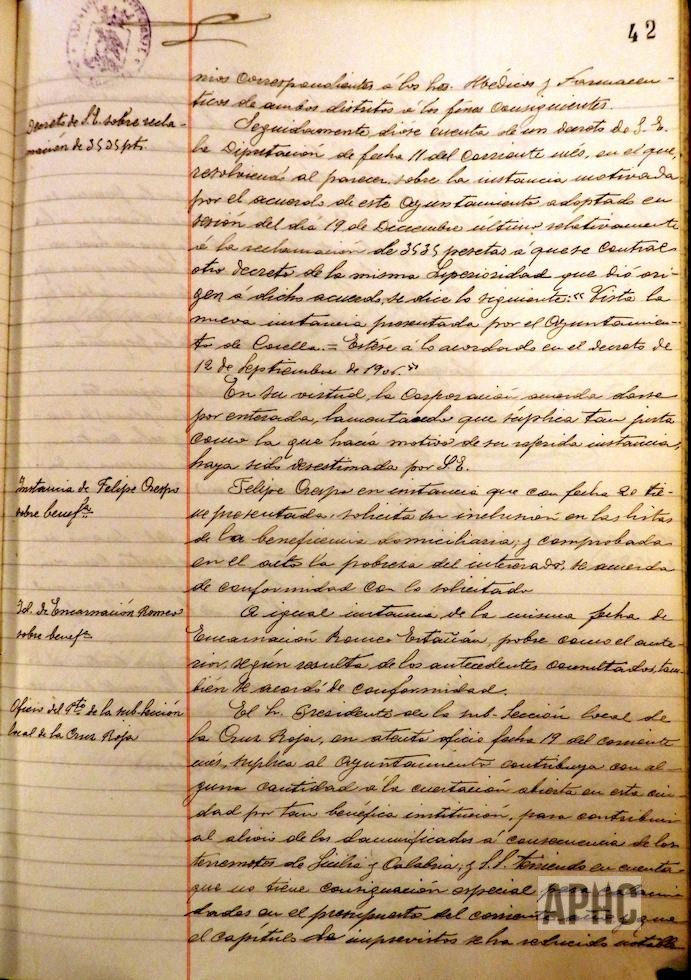 42
nios correspondientes á los hos. Médicos y Farmaceu-
ticos de ambos distritos á los fines consiguientes.
Decreto de S.E. sobre recla-
mación de 3535 pts.
Seguidamente dióse cuenta de un decreto de S.E.
la Diputación de fecha 11 del corriente més, en el que,
resolviendo al parecer sobre la instancia motivada
por el acuerdo de este Ayuntamiento adoptado en
sesión del dia 19 de Diciembre ultimo relativamente
á la reclamación de 3535 pesetas á que se contrae
otro decreto de la misma Superioridad que dió ori-
gen á dicho acuerdo, se dice lo siguiente: "Vista la
nueva instancia presentada por el Ayuntamien-
to de Corella. = Estése á lo acordado en el decreto de
12 de Septiembre de
En su virtud, la Corporación acuerda darse
por enterada, lamentando que súplica tan justa
como la que hacia motivo de su referida instancia,
haya sido desestimada por S.E.
Instancia de Felipe Crespo
sobre benefa.
Felipe Crespo en instancia que con fecha 20 tie-
ne presentada, solicita su inclusión en las listas
de la beneficencia domiciliaria; y comprobada
en el acto la pobreza del interesado, se acuerda
de conformidad con lo solicitado
Id. de Encarnación Romeo
sobre benefa.
A igual instancia de la misma fecha de
Encarnación Romeo Estañán, pobre como el ante-
rior, según resulta de los antecedentes consultados, tam-
bién se acordó de conformidad.
Oficio del Pte. de la sub-sección
local de la Cruz Roja
El Sr. Presidente de la sub-Sección local de
la Cruz Roja, en atento oficio fecha 19 del corriente
més, suplica al Ayuntamiento contribuya con al-
guna cantidad á la cuestación abierta en esta ciu-
dad por tan benéfica institución, para contribuir
al alivio de los damnificados á consecuencia de los
terremotos de Sicilia y Calabria; y S.S. teniendo en cuenta
que no tiene consignación especial
dades en el presupuesto del corriente y que
el capítulo de imprevistos se ha reducido notable
APHC